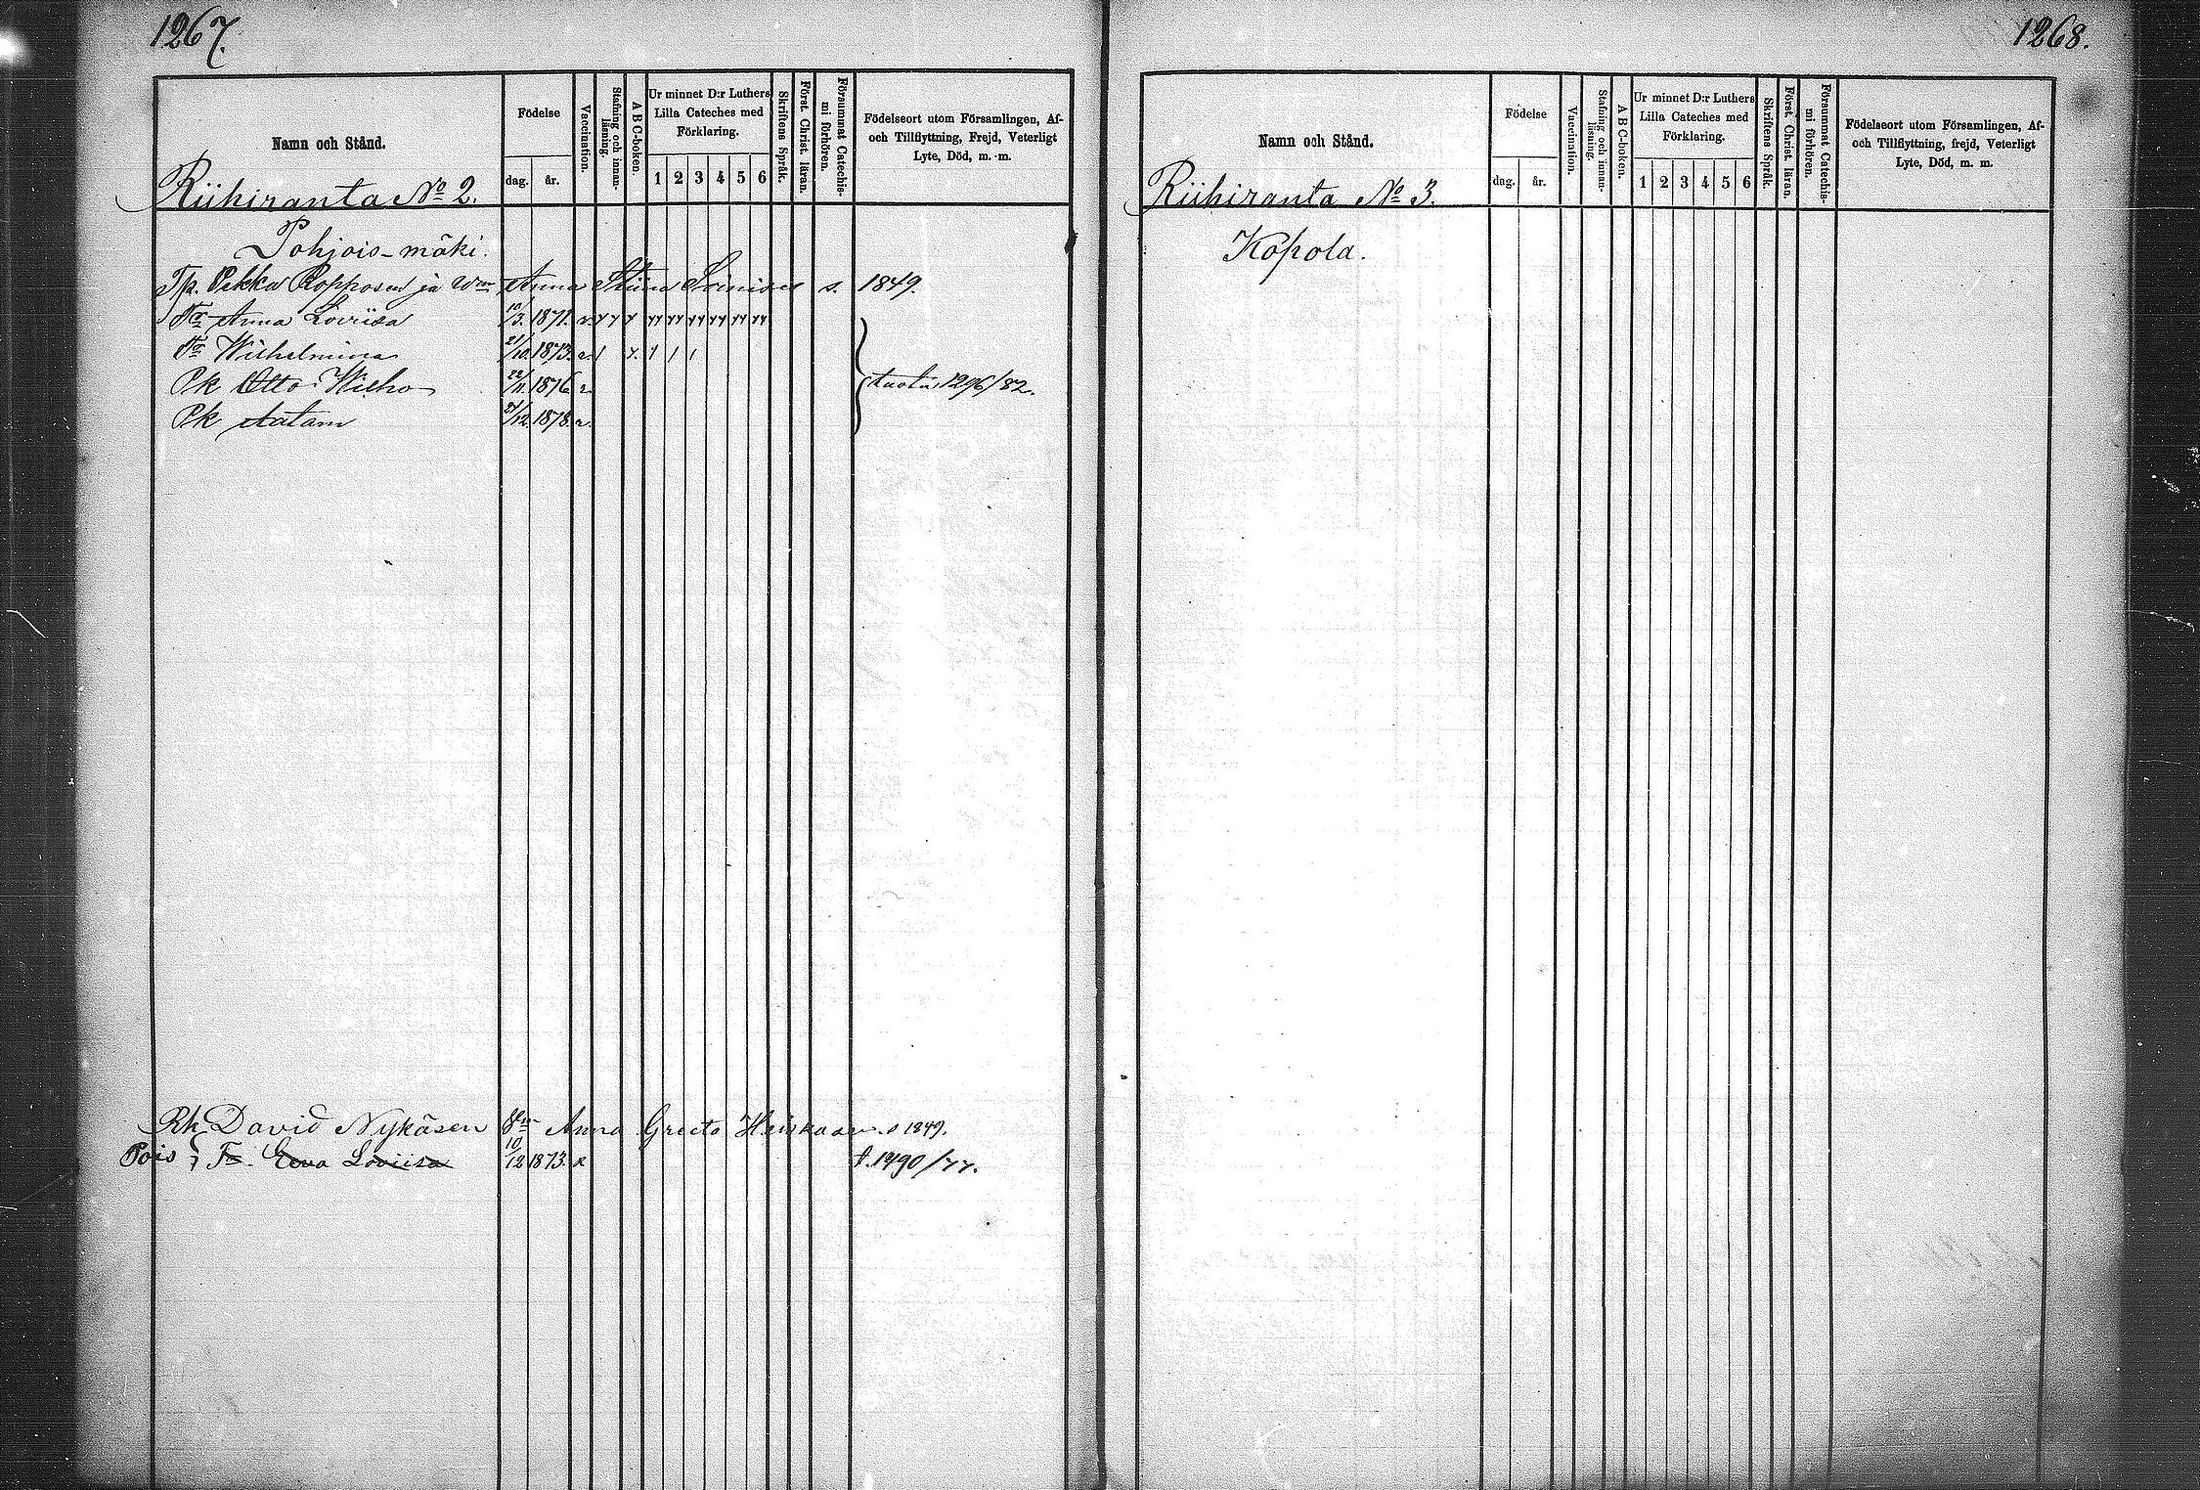 1267.
Namn och Stånd.
Födelse
dag.
år.
Vaccination.
Stafning och innanläsning.
ABC-boken.
Ur minnet D:r Luthers
Lilla Cateches med
Förklaring.
1 2 3 4 5 6
Skriftens Språk.
Först. Christ. läran.
Försummat Catechismi förhören.
Födelseort utom Församlingen, Af-
och Tillflyttning, Frejd, Veterligt
Lyte, Död, m. m.
Riihiranta No 2.
Pohjois-mäki.
Tp. Pekka Ropposen ja Wmn Anna Stiina Soinisen s. 1849.
Tr Anna Loviisa 10/3. 1871.
Tr Wilhelmina 21/10. 1873.
Pk Otto Wilho 22/11 1876
Pk Aatam 21/12 1878
1296/82.
Rh David Nykäsen Anna Greeta s 1849.
Pois Tr. Eeva Loviisa 10/12 1873. R f. 1490/77.
1268.
Namn och Stånd.
Födelse
dag.
år.
Vaccination.
Stafning och innanläsning.
ABC-boken.
Ur minnet D:r Luthers
Lilla Cateches med
Förklaring.
1 2 3 4 5 6
Skriftens Språk.
Först. Christ. läran.
Försummat Catechismi förhören.
Födelseort utom Församlingen, Af-
och Tillflyttning, frejd, Veterligt
Lyte, Död, m. m.
Riihiranta No 3.
Kopola.